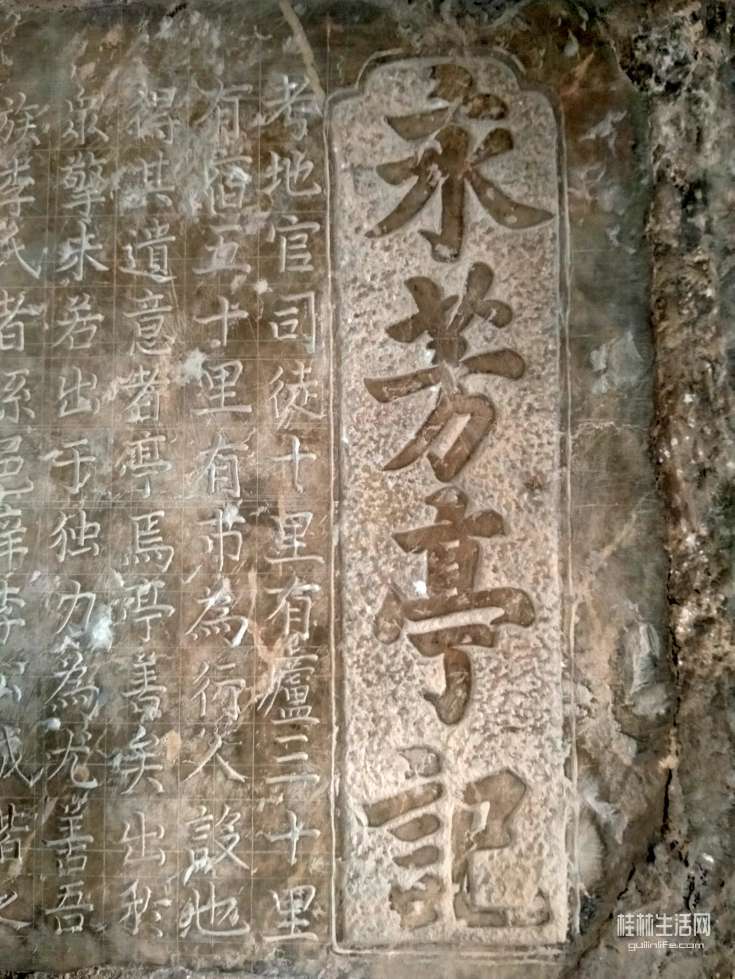 永芳亭記
考地官司徒十里有廬三十里
有宿五十里有市為行人設也
得其遺意者亭焉亭善矣出於
衆擎未若出于独力為尤善吾
族李氏者系邑庠李公成階之
桂林生活网
guilinlife.com